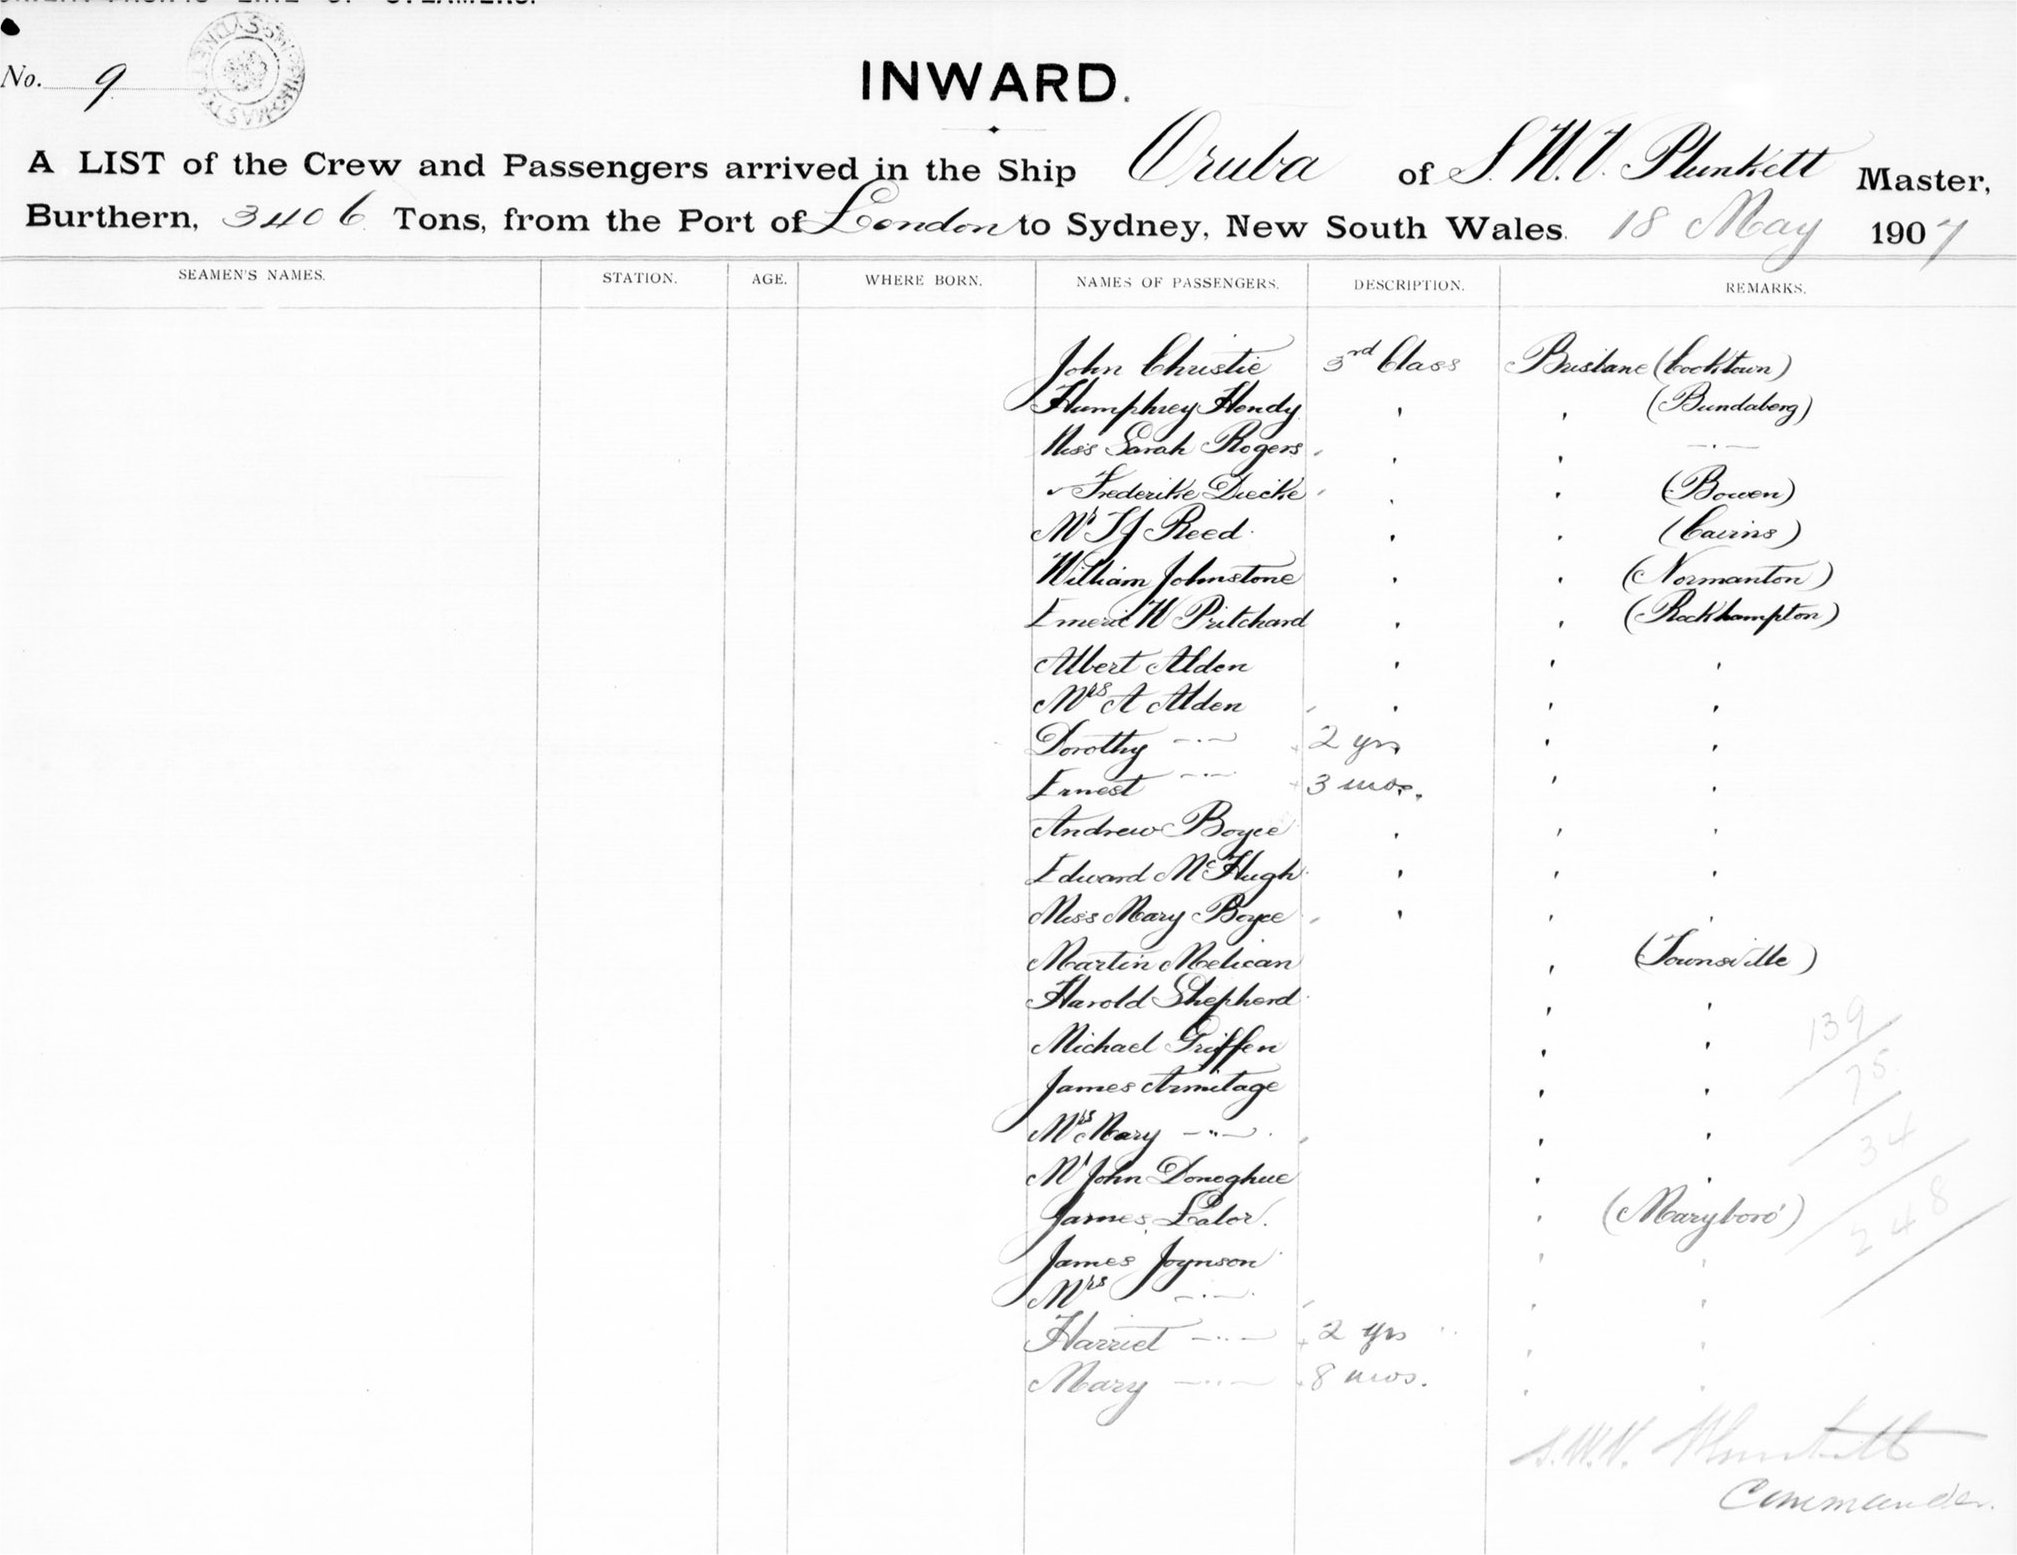 No. 9
INWARD.
A LIST of the Crew and Passengers arrived in the Ship Oruba of S. W. V. Plunkett Master,
Burthern, 3406 Tons, from the Port of London to Sydney, New South Wales. 18 May 1907
SEAMEN'S NAMES. STATION. AGE. WHERE BORN. NAMES OF PASSENGERS. DESCRIPTION. REMARKS.
John Christie 3rd Class Brisbane (Cooktown)
Humphrey Hendy " " (Bundaberg)
Miss Sarah Rogers " " —"—
" Frederike Diecke " " (Bowen)
Mr T J Reed " " (Cairns)
William Johnstone " " (Normanton)
Emeric W Pritchard " " (Rockhampton)
Albert Alden " " "
Mrs A Alden " " "
Dorothy —"— 2 yrs " "
Ernest —"— 3 mos. " "
Andrew Boyce " " "
Edward McHugh " " "
Miss Mary Boyce " " "
Martin Melican " (Townsville)
Harold Shepherd " "
Michael Griffen " "
James Armitage " "
Mrs Mary —"— " "
Mr John Donoghue " "
James Lalor. " (Maryboro')
James Joynson " "
Mrs —"— " "
Harriet —"— 2 yrs " "
Mary —"— 8 mos. " "
139
75
34
248
S. W. V. Plunkett
Commander.